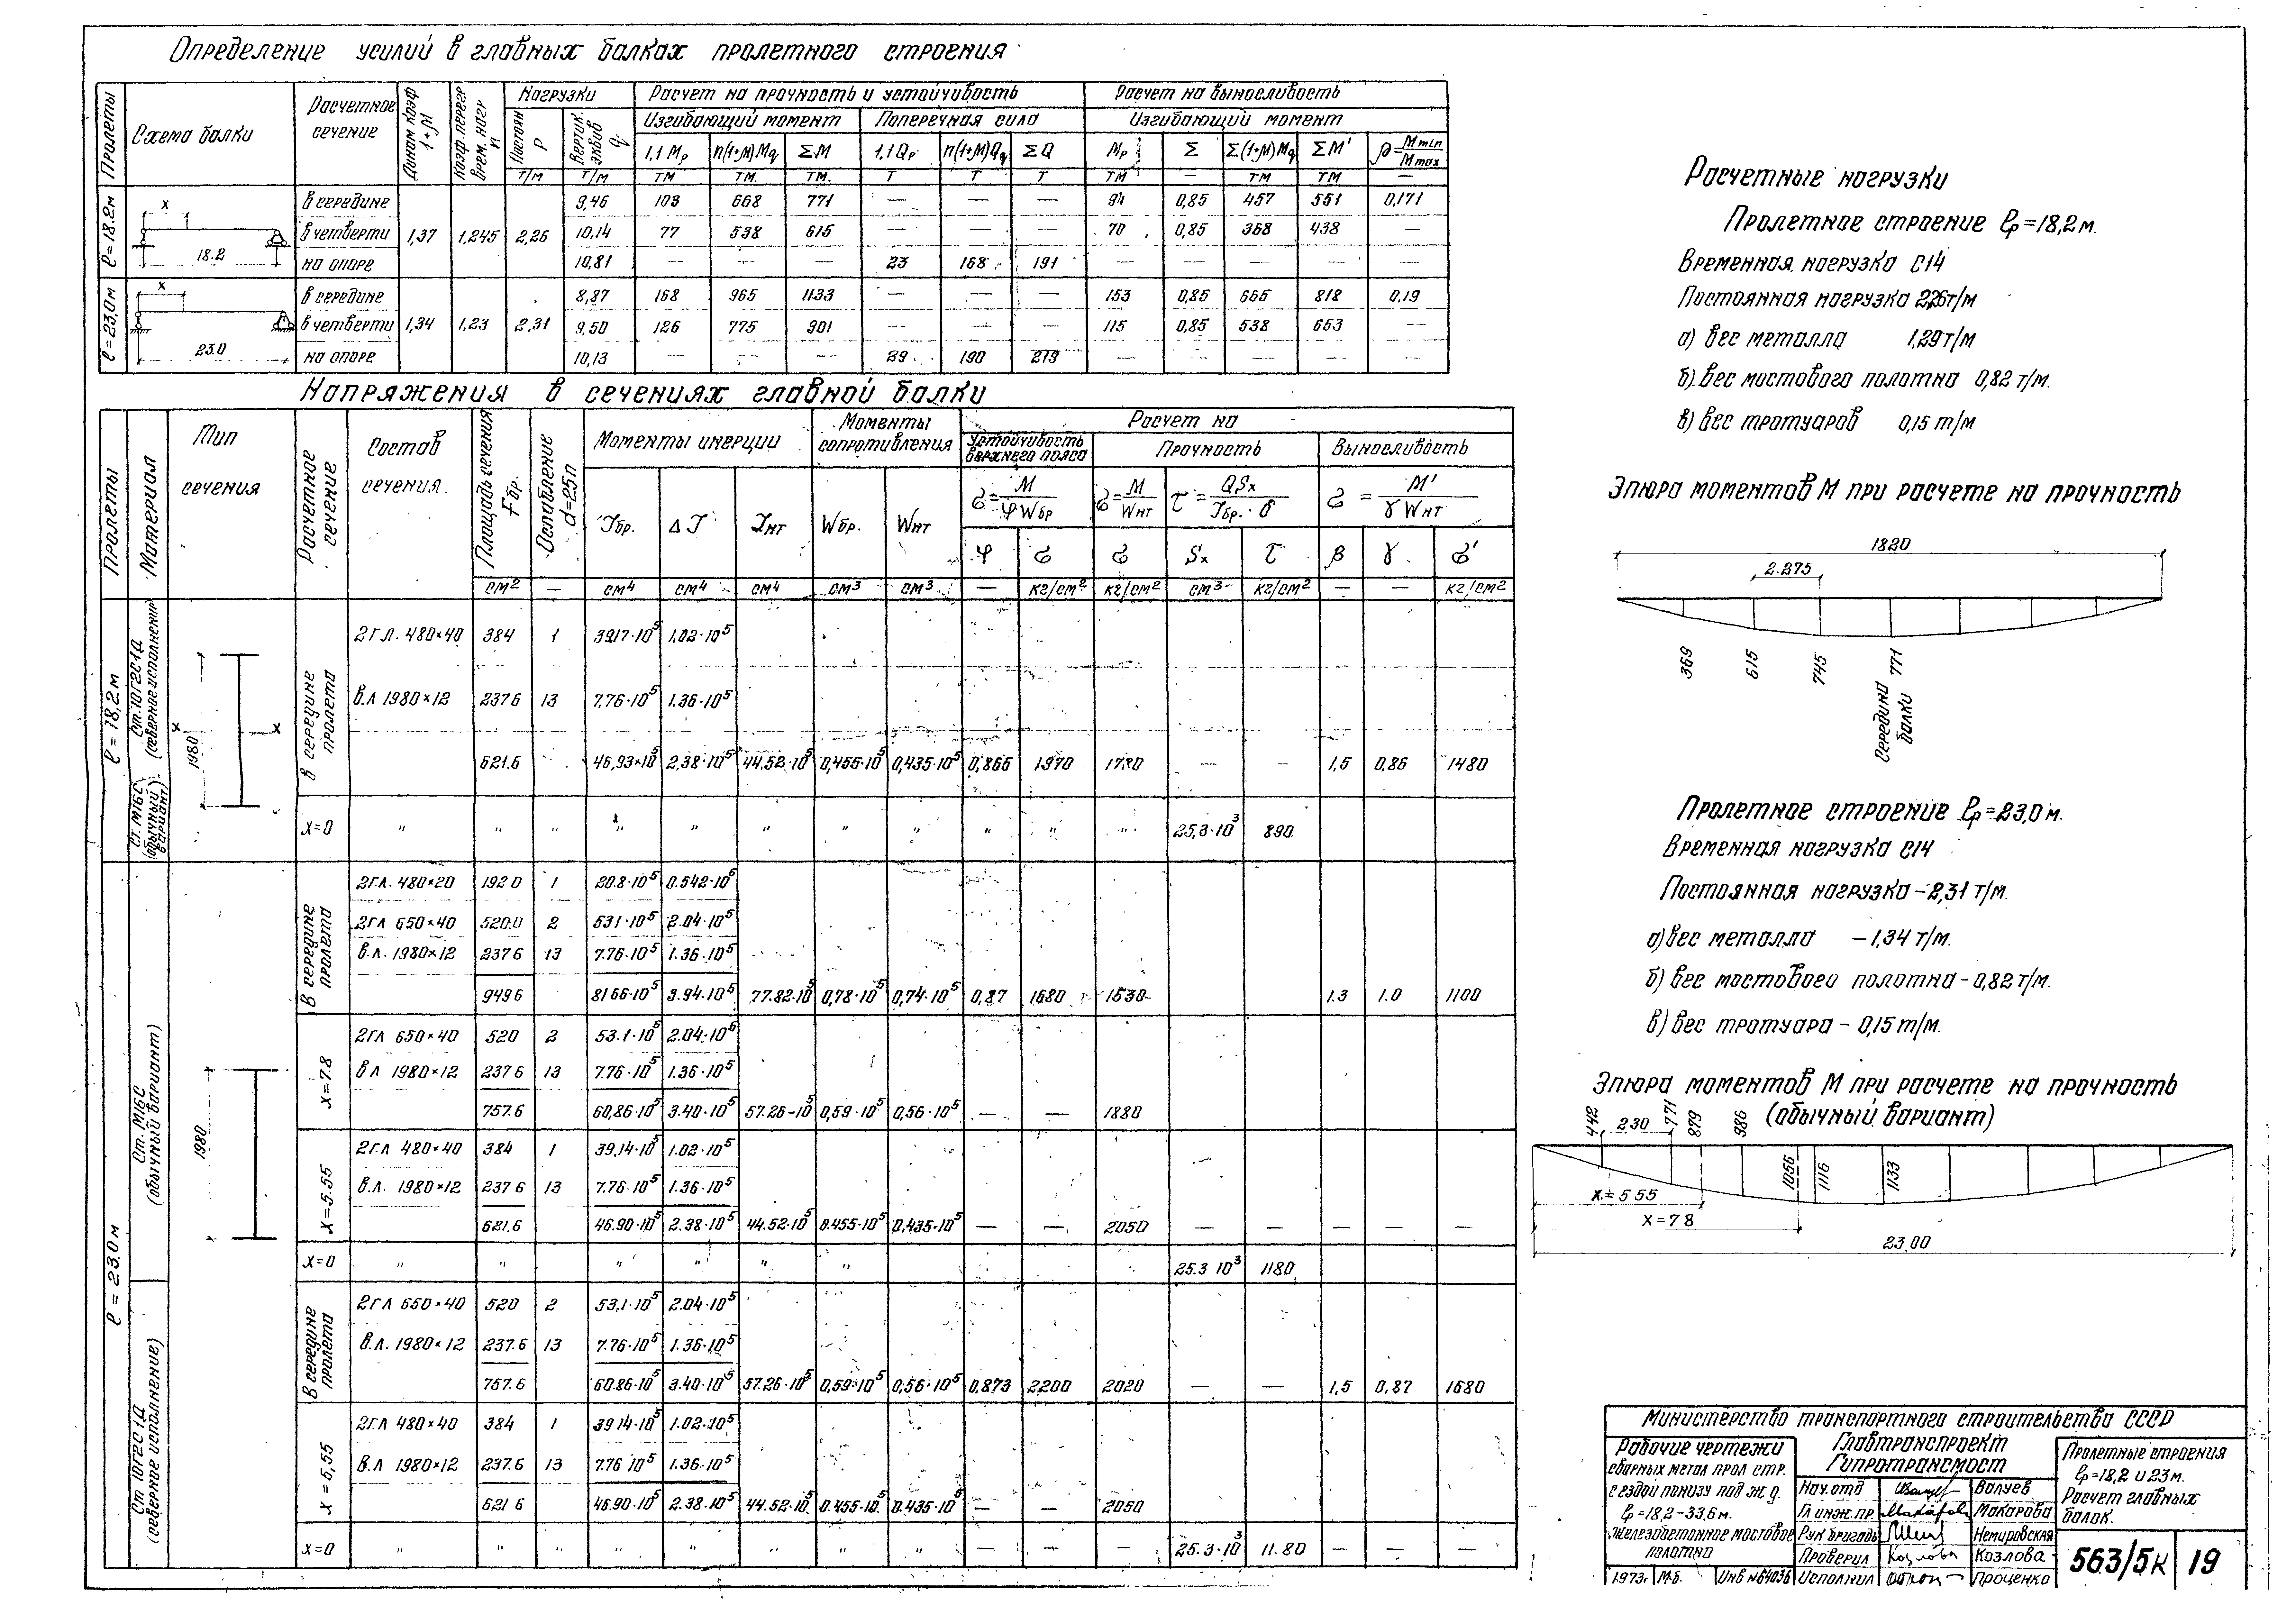 Определение усилий в главных балках пролетного строения
Пролеты
Схема балки
Расчетное сечение
Динам коэф 1+М
Коэф. перегр врем. нагр n
Нагрузки
Расчет на прочность и устойчивость
Расчет на выносливость
Постоян P
Вертик. эквив q
Изгибающий момент
Поперечная сила
Изгибающий момент
1,1 Mр n(1+М)Mq ΣM 1,1 Qр n(1+М)Qq ΣQ Mр Σ Σ(1+М)Mq ΣM' ρ=Mmin/Mmax
т/м т/м тм тм. тм. т т т тм — тм тм —
ℓ=18.2м
x
18.2
в середине 9,46 103 668 771 — — — 94 0,85 457 551 0,171
в четверти 1,37 1,245 2,26 10,14 77 538 615 — — — 70 0,85 368 438 —
на опоре 10,81 — — — 23 168 191 — — — — —
ℓ=23,0м
x
23.0
в середине 8,87 168 965 1133 — — — 153 0,85 665 818 0,19
в четверти 1,34 1,23 2,31 9,50 126 775 901 — — — 115 0,85 538 653 —
на опоре 10,13 — — — 29 190 219 — — — — —
Напряжения в сечениях главной балки
Пролеты
Материал
Тип сечения
Расчетное сечение
Состав сечения
Площадь сечения Fбр.
Ослабление d=25п
Моменты инерции
Моменты сопротивления
Расчет на
Устойчивость верхнего пояса
Прочность
Выносливость
Jбр. ΔJ Jнт Wбр. Wнт
σ=M/φWбр σ=M/Wнт τ=QSx/Jбр.·δ σ=M'/γWнт
φ σ σ Sx τ β γ σ'
см² — см⁴ см⁴ см⁴ см³ см³ — кг/см² кг/см² см³ кг/см² — — кг/см²
ℓ=18,2м
Ст.10Г2С1Д (северное исполнение)
Ст. М16С (обычный вариант)
1980
x x
в середине пролета
2гл. 480×40 384 1 39,17·10⁵ 1.02·10⁵
в.л 1980×12 237.6 13 7.76·10⁵ 1.36·10⁵
621.6 46,93×10⁵ 2,38·10⁵ 44.52·10⁵ 0,455·10⁵ 0,435·10⁵ 0,865 1970 1780 — — 1,5 0,86 1480
x=0 " " " " " " " " " " " 25,3·10³ 890
ℓ=23.0м
Ст. М16С (обычный вариант)
1980
в середине пролета
2гл. 480×20 192 0 1 20.8·10⁵ 0.542·10⁵
2гл 650×40 520.0 2 531·10⁵ 2.04·10⁵
в.л. 1980×12 237 6 13 7.76·10⁵ 1.36·10⁵
949 6 81 66·10⁵ 3.94·10⁵ 77.82·10⁵ 0,78·10⁵ 0,74·10⁵ 0,87 1680 1530 1.3 1.0 1100
x=7.8
2гл 650×40 520 2 53.1·10⁵ 2.04·10⁵
в л 1980×12 237.6 13 7.76·10⁵ 1.36·10⁵
757.6 60,86·10⁵ 3.40·10⁵ 57.26·10⁵ 0,59·10⁵ 0,56·10⁵ — — 1880
x=5.55
2гл 480×40 384 1 39,14·10⁵ 1.02·10⁵
в.л. 1980×12 237 6 13 7.76·10⁵ 1.36·10⁵
621,6 46.90·10⁵ 2.38·10⁵ 44.52·10⁵ 0.455·10⁵ 0.435·10⁵ — — 2050 — — — — —
x=0 " " " " " " 25.3 10³ 1180
Ст 10Г2С1Д (северное исполнение)
в середине пролета
2гл 650×40 520 2 53,1·10⁵ 2.04·10⁵
в.л. 1980×12 237.6 13 7.76·10⁵ 1.36·10⁵
757.6 60.86·10⁵ 3.40·10⁵ 57.26·10⁵ 0,59·10⁵ 0,56·10⁵ 0,873 2200 2020 — — 1,5 0,87 1680
x=5,55
2гл 480×40 384 1 39 14·10⁵ 1.02·10⁵
в.л 1980×12 237.6 13 7.76 10⁵ 1.36·10⁵
621 6 46.90·10⁵ 2.38·10⁵ 44.52·10⁵ 0.455·10⁵ 0.435·10⁵ — — 2050
x=0 " " " " " " " " — — — 25.3·10³ 11.80 — — —
Расчетные нагрузки
Пролетное строение ℓр=18,2м.
Временная нагрузка С14
Постоянная нагрузка 2,26т/м
а) вес металла 1,29т/м
б) вес мостового полотна 0,82 т/м.
в) вес тротуаров 0,15 т/м
Эпюра моментов М при расчете на прочность
1820
2.275
369 615 745 771
Середина балки
Пролетное строение ℓр=23,0м.
Временная нагрузка С14
Постоянная нагрузка – 2,31 т/м.
а) вес металла – 1,34 т/м.
б) вес мостового полотна – 0,82 т/м.
в) вес тротуара – 0,15 т/м.
Эпюра моментов М при расчете на прочность
(обычный вариант)
442 2 30 771 879 986
1056 1116 1133
x=5 55
x=7 8
23.00
Министерство транспортного строительства СССР
Рабочие чертежи
сварных метал прол стр.
с ездой понизу под ж.д.
ℓр=18,2–33,6м.
Железобетонное мостовое
полотно
1973г М-б. Инв №64036
Главтранспроект
Гипротрансмост
Нач. отд Валуев
Гл инж. пр. Макарова
Рук бригады Немировская
Проверил Козлова
Исполнил Проценко
Пролетные строения
ℓр=18,2 и 23м.
Расчет главных
балок.
563/5к 19